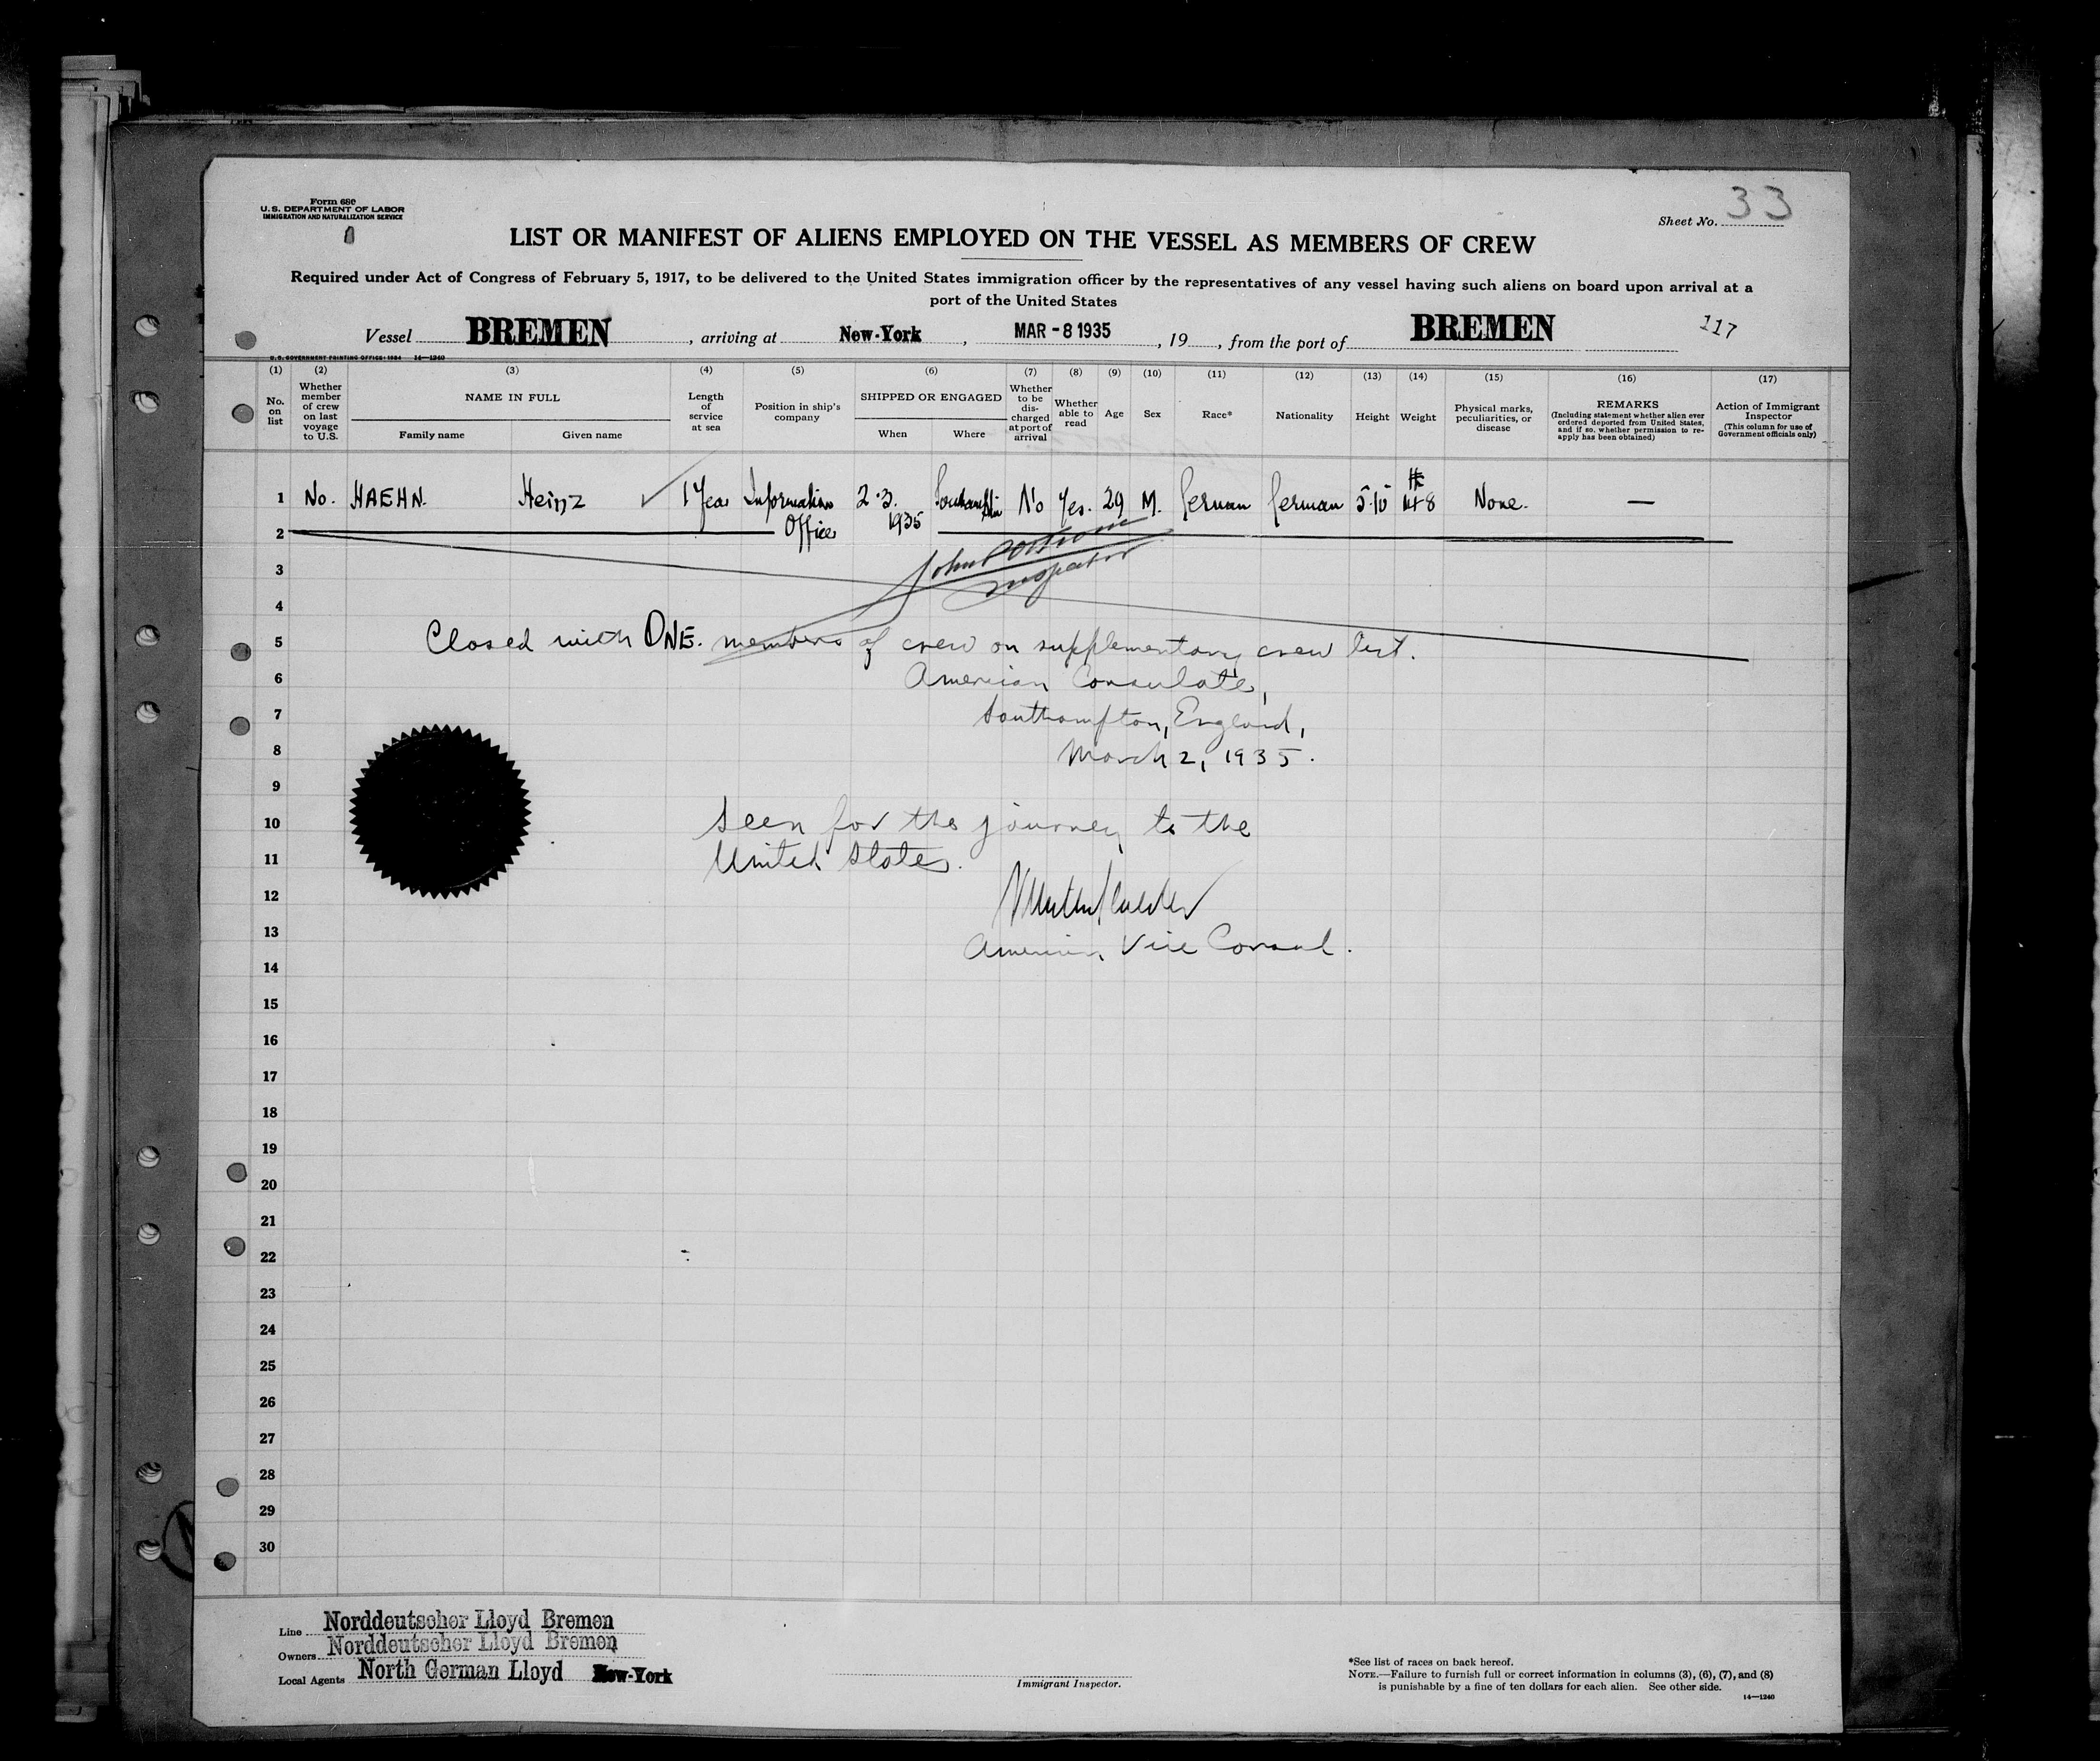 Form 680
U.S. DEPARTMENT OF LABOR
IMMIGRATION AND NATURALIZATION SERVICE
Sheet No. 33
LIST OR MANIFEST OF ALIENS EMPLOYED ON THE VESSEL AS MEMBERS OF CREW
Required under Act of Congress of February 5, 1917, to be delivered to the United States immigration officer by the representatives of any vessel having such aliens on board upon arrival at a
port of the United States
Vessel BREMEN, arriving at New-York, MAR - 8 1935, 19, from the port of BREMEN 117
U.S. GOVERNMENT PRINTING OFFICE: 1934 14—1240
(1) (2) (3) (4) (5) (6) (7) (8) (9) (10) (11) (12) (13) (14) (15) (16) (17)
No. on list
Whether member of crew on last voyage to U.S.
NAME IN FULL
Family name
Given name
Length of service at sea
Position in ship's company
SHIPPED OR ENGAGED
When
Where
Whether to be discharged at port of arrival
Whether able to read
Age
Sex
Race*
Nationality
Height
Weight
Physical marks, peculiarities, or disease
REMARKS
(Including statement whether alien ever ordered deported from United States, and if so, whether permission to reapply has been obtained)
Action of Immigrant Inspector
(This column for use of Government officials only)
1 No. HAEHN. Heinz 1 Year Information Office 2.3. 1935 Southampton No Yes. 29 M. German German 5.10 148 None. —
2
John
Inspector
3
4
5 Closed with ONE. members of crew on supplementary crew list.
6 American Consulate,
7 Southampton, England,
8 March 2, 1935.
9
10 Seen for the journey to the
11 United States.
12
13 American Vice Consul.
14
15
16
17
18
19
20
21
22
23
24
25
26
27
28
29
30
Line Norddeutscher Lloyd Bremen
Owners Norddeutscher Lloyd Bremen
Local Agents North German Lloyd New-York
Immigrant Inspector.
*See list of races on back hereof.
NOTE.—Failure to furnish full or correct information in columns (3), (6), (7), and (8)
is punishable by a fine of ten dollars for each alien. See other side.
14—1240